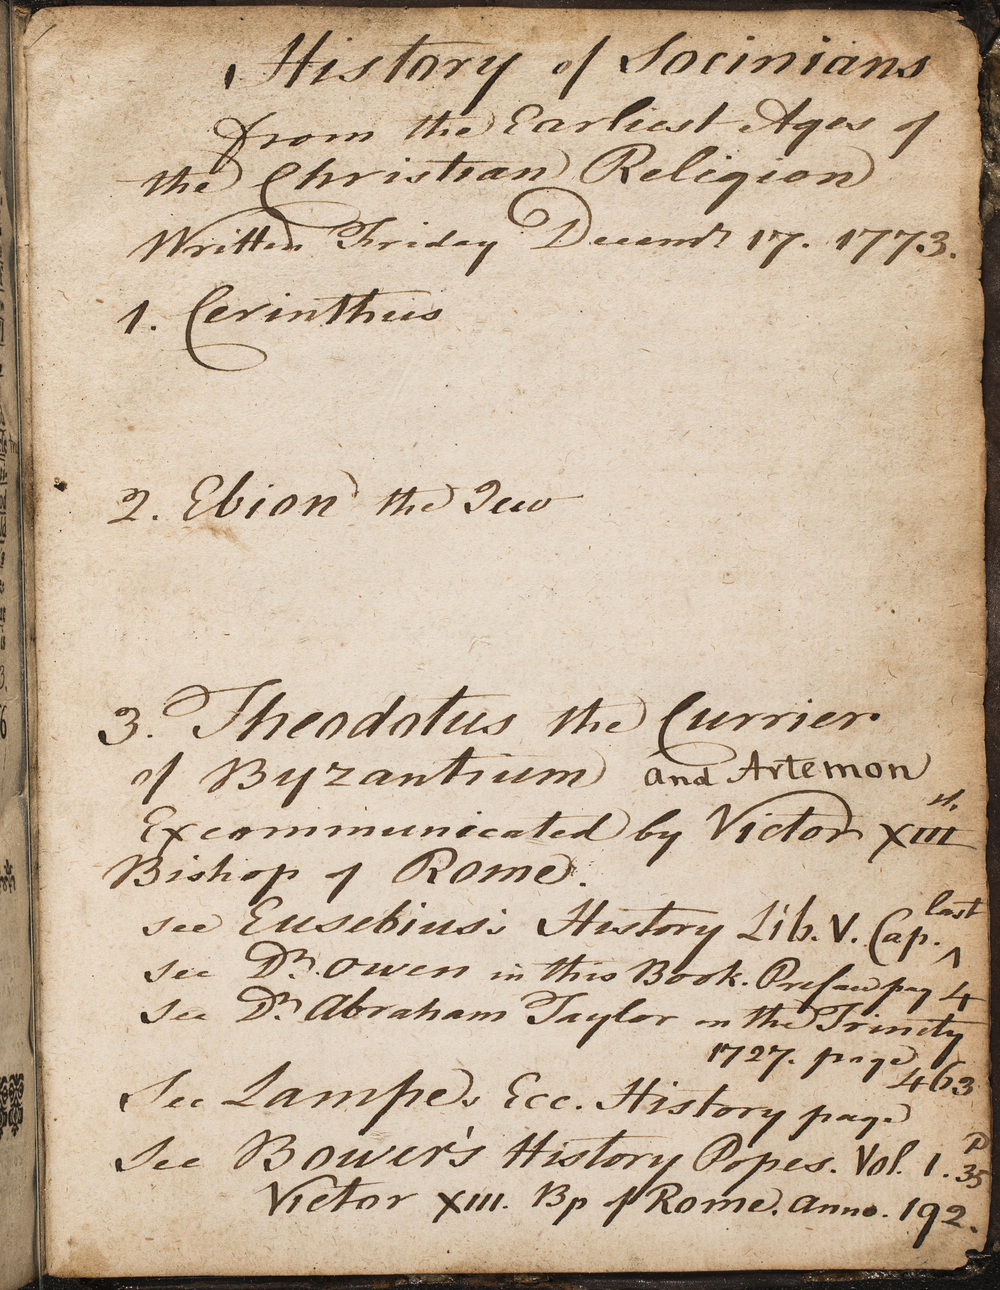 History of Socinians
from the Earliest Ages of
the Christian Religion
Written Friday Decemr 17. 1773.
1. Cerinthus
2. Ebion the Jew
3. Theodotus the Currier
of Byzantium and Artemon
Excommunicated by Victor XIII th.
Bishop of Rome.
see Eusebius's History Lib. V. Cap. ^ last
see Dr. Owen in this Book. Preface pag 4
See Dr. Abraham Taylor on the Trinity
1727. page 463
See Lampe, Ecc. History page
See Bower's History Popes. Vol. 1. P 35
Victor XIII. Bp of Rome. anno. 192.